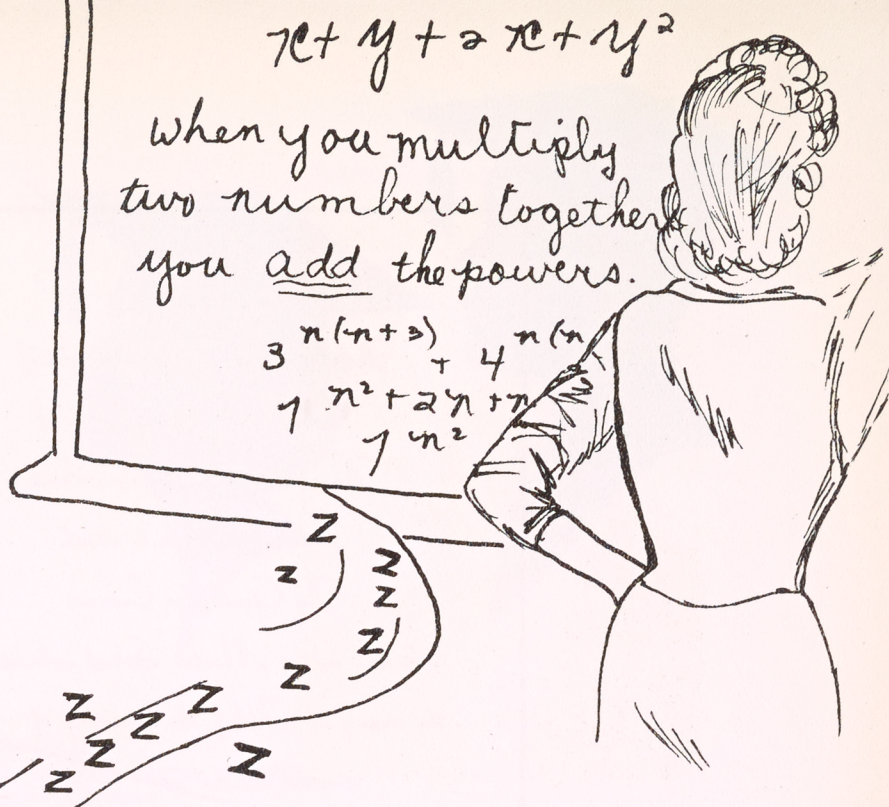 x + y + 2x + y²
when you multiply
two numbers together
you add the powers.
3^n(n+3) + 4^n(n
7^n²+2n+n
7^n²
Z
z
Z
Z
Z
Z
Z
Z
Z
Z
Z
Z